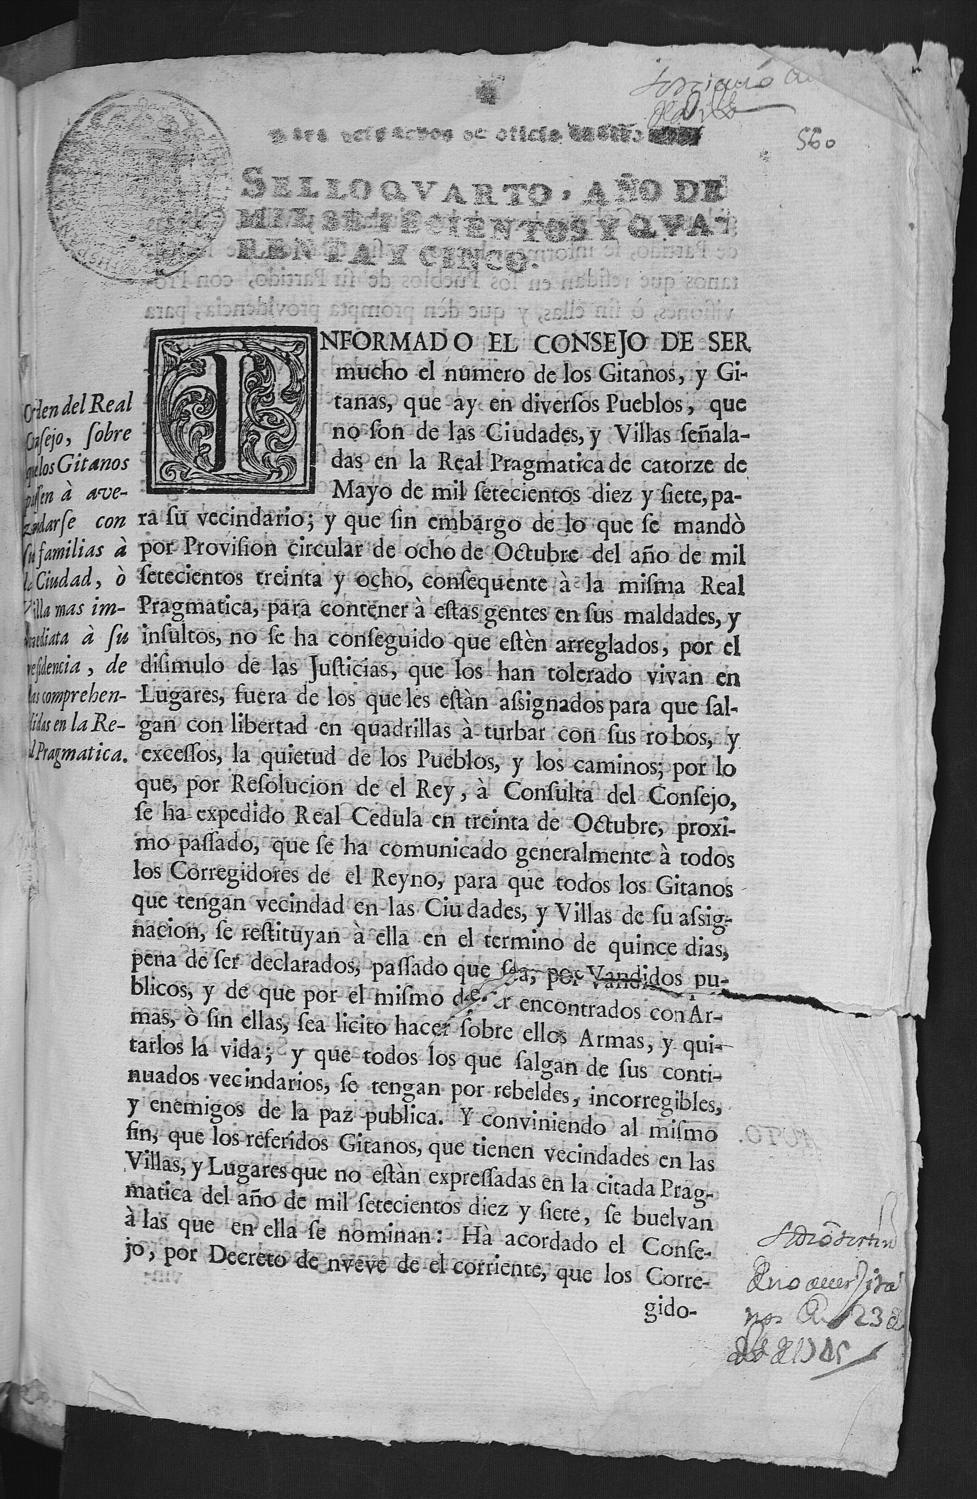 560
SELLO QVARTO, AÑO DE
MIL SETECIENTOS Y QVA-
RENTA Y CINCO.
Orden del Real
Consejo, sobre
que los Gitanos
passen à ave-
zindarse con
su familias à
la Ciudad, ò
Villa mas im-
mediata à su
residencia, de
las comprehen-
didas en la Re-
al Pragmatica.
INFORMADO EL CONSEJO DE SER
mucho el numero de los Gitanos, y Gi-
tanas, que ay en diversos Pueblos, que
no son de las Ciudades, y Villas señala-
das en la Real Pragmatica de catorze de
Mayo de mil setecientos diez y siete, pa-
ra su vecindario; y que sin embargo de lo que se mandò
por Provision circular de ocho de Octubre del año de mil
setecientos treinta y ocho, consequente à la misma Real
Pragmatica, para contener à estas gentes en sus maldades, y
insultos, no se ha conseguido que estèn arreglados, por el
disimulo de las Justicias, que los han tolerado vivan en
Lugares, fuera de los que les estàn assignados para que sal-
gan con libertad en quadrillas à turbar con sus robos, y
excessos, la quietud de los Pueblos, y los caminos; por lo
que, por Resolucion de el Rey, à Consulta del Consejo,
se ha expedido Real Cedula en treinta de Octubre, proxi-
mo passado, que se ha comunicado generalmente à todos
los Corregidores de el Reyno, para que todos los Gitanos
que tengan vecindad en las Ciudades, y Villas de su assig-
nacion, se restituyan à ella en el termino de quince dias,
pena de ser declarados, passado que sea, por Vandidos pu-
blicos, y de que por el mismo de ser encontrados con Ar-
mas, ò sin ellas, sea licito hacer sobre ellos Armas, y qui-
tarlos la vida; y que todos los que salgan de sus conti-
nuados vecindarios, se tengan por rebeldes, incorregibles,
y enemigos de la paz publica. Y conviniendo al mismo
fin, que los referidos Gitanos, que tienen vecindades en las
Villas, y Lugares que no estàn expressadas en la citada Prag-
matica del año de mil setecientos diez y siete, se buelvan
à las que en ella se nominan: Hà acordado el Conse-
jo, por Decreto de nveve de el corriente, que los Corre-
gido-